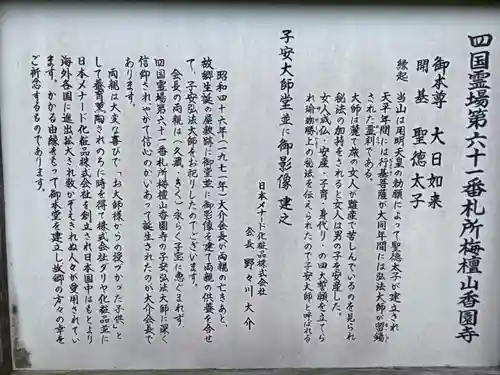 四国霊場第六十一番札所栴檀山香園寺
御本尊 大日如来
開基 聖徳太子
縁起 当山は用明天皇の勅願によって、聖徳太子が建立され
天平年間には行基菩薩が大同年間には弘法大師が留錫
された霊刹である。
大師は麓で旅の女人が難産で苦しんでいるのを見られ
秘法の加持をされると女人は男の子を安産した。
女人成仏、安産・子育・身代り、の四大誓願を立てら
れ瑜祇上の秘法を伝えられたので子安大師と呼ばれる
子安大師堂並に御影像 建之
日本メナード化粧品株式会社
会長 野々川 大介
昭和四十六年(一九七一年)大介会長が両親の亡きあと、
故郷生誕の屋敷跡に御堂並に御影像を建て両親の供養を合せ
て、子安弘法大師をお祀りしたのでございます。
会長の両親は(久蔵・きく)永らく子宝に恵まれず、
四国霊場第六十一番札所栴檀山香園寺の子安弘法大師に深く
信仰されやがて信心のかいあって誕生されたのが大介会長で
あります。
両親は大変な喜びで「お大師様からの授かった子供」と
して養育薫陶されのちに時を得て株式会社ダリヤ化粧品並に
日本メナード化粧品株式会社を創立され日本国中はもとより
海外各国に進出拡大され数かぞえきれぬ人々が愛用されてい
ます。かかる由縁をもって御本堂を建立し故郷の方々の幸を
ご祈念するものであります。